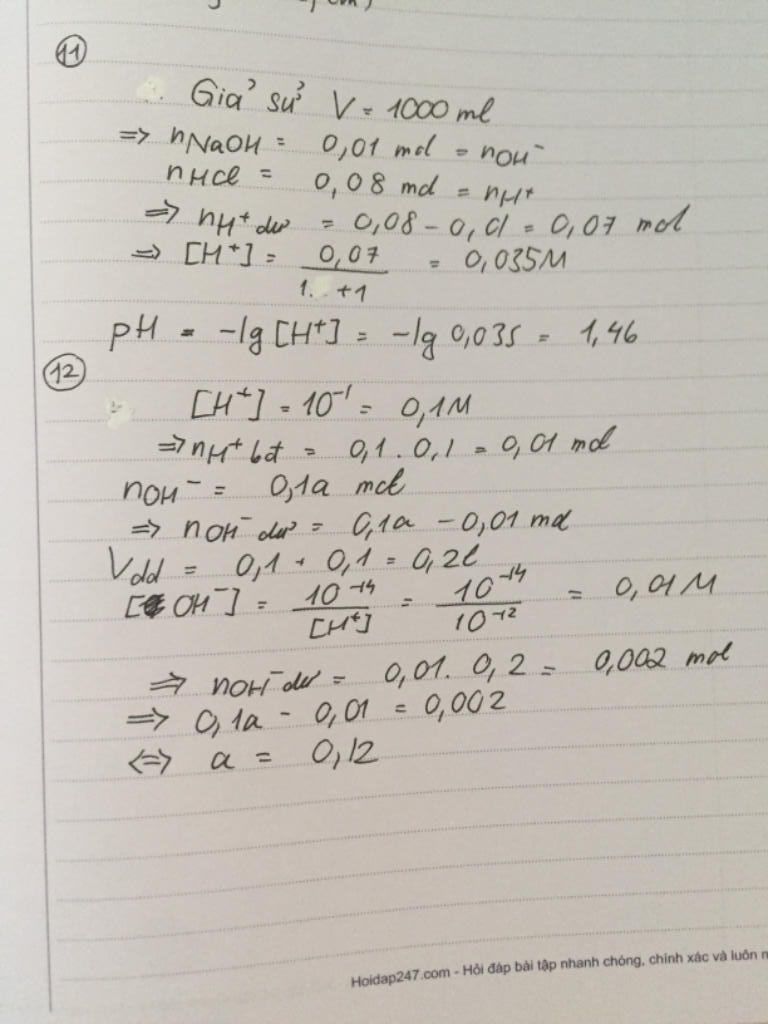 11
Giả sử V = 1000 ml
=> nNaOH = 0,01 mol = nOH⁻
nHCl = 0,08 mol = nH⁺
=> nH⁺ dư = 0,08 - 0,01 = 0,07 mol
=> [H⁺] = 0,07 / 1 +1 = 0,035M
pH = -lg [H⁺] = -lg 0,035 = 1,46
12
[H⁺] = 10⁻¹ = 0,1M
=> nH⁺ bđ = 0,1 . 0,1 = 0,01 mol
nOH⁻ = 0,1a mol
=> nOH⁻ dư = 0,1a - 0,01 mol
Vdd = 0,1 + 0,1 = 0,2l
[OH⁻] = 10⁻¹⁴ / [H⁺] = 10⁻¹⁴ / 10⁻¹² = 0,01M
=> nOH⁻ dư = 0,01. 0,2 = 0,002 mol
=> 0,1a - 0,01 = 0,002
<=> a = 0,12
Hoidap247.com - Hỏi đáp bài tập nhanh chóng, chính xác và luôn